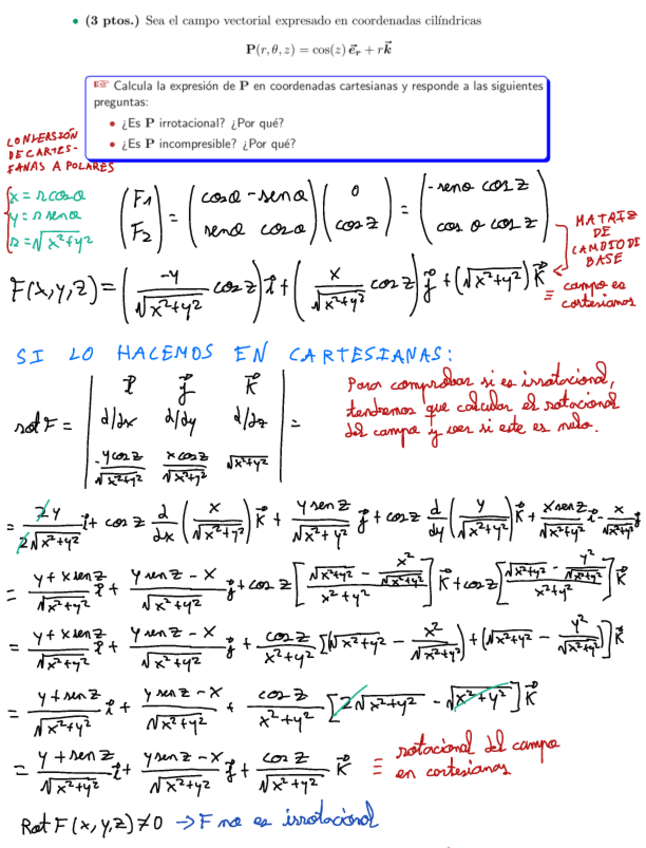 • (3 ptos.) Sea el campo vectorial expresado en coordenadas cilíndricas
P(r, θ, z) = cos(z) e⃗_r + rk⃗
☞ Calcula la expresión de P en coordenadas cartesianas y responde a las siguientes
preguntas:
• ¿Es P irrotacional? ¿Por qué?
• ¿Es P incompresible? ¿Por qué?
CONVERSIÓN
DE CARTES-
IANAS A POLARES
{x = r cos θ
y = r sen θ
r = √(x²+y²)
(F1 F2) = (cos θ -sen θ / sen θ cos θ) (0 / cos z) = (-sen θ cos z / cos θ cos z)
MATRIZ
DE
CAMBIO DE
BASE
F(x,y,z) = (-y/√(x²+y²) cos z) i⃗ + (x/√(x²+y²) cos z) j⃗ + (√(x²+y²)) k⃗
≡ campo es
cartesianas
SI LO HACEMOS EN CARTESIANAS:
rot F = | i⃗ j⃗ k⃗ / d/dx d/dy d/dz / -y cos z/√(x²+y²) x cos z/√(x²+y²) √(x²+y²) | =
Para comprobar si es irrotacional,
tendremos que calcular el rotacional
del campo y ver si este es nulo.
= 2y/2√(x²+y²) i⃗ + cos z d/dx (x/√(x²+y²)) k⃗ + y sen z/√(x²+y²) j⃗ + cos z d/dy (y/√(x²+y²)) k⃗ + x sen z/√(x²+y²) i⃗ - x/√(x²+y²) j⃗
= y + x sen z/√(x²+y²) i⃗ + y sen z - x/√(x²+y²) j⃗ + cos z [√(x²+y²) - x²/√(x²+y²) / x²+y²] k⃗ + cos z [√(x²+y²) - y²/√(x²+y²) / x²+y²] k⃗
= y + x sen z/√(x²+y²) i⃗ + y sen z - x/√(x²+y²) j⃗ + cos z/x²+y² [(√(x²+y²) - x²/√(x²+y²)) + (√(x²+y²) - y²/√(x²+y²))] k⃗
= y + sen z/√(x²+y²) i⃗ + y sen z - x/√(x²+y²) + cos z/x²+y² [2√(x²+y²) - √(x²+y²)] k⃗
= y + sen z/√(x²+y²) i⃗ + y sen z - x/√(x²+y²) j⃗ + cos z/√(x²+y²) k⃗ ≡ rotacional del campo
en cartesianas
Rot F (x, y, z) ≠ 0 → F no es irrotacional